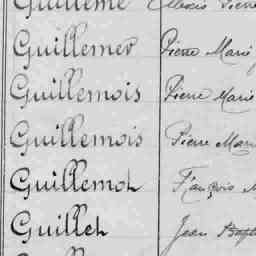 Guillème Alexis Pierre
Guillemer Pierre Marie
Guillemois Pierre Marie
Guillemois Pierre Marie
Guillemot François M
Guillet Jean Bapt